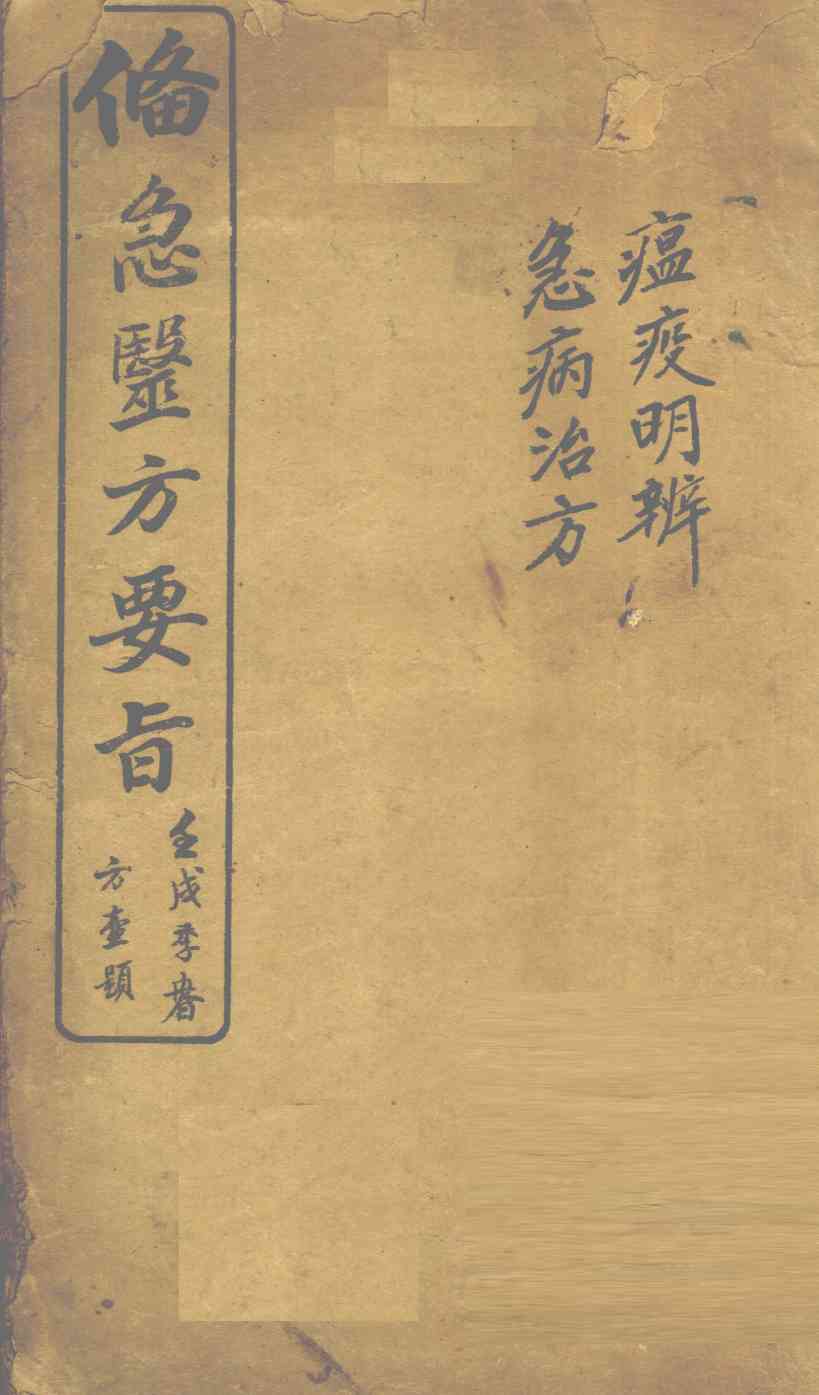 瘟疫明辨
急病治方
俻急醫方要旨
壬戌季春
方壺題